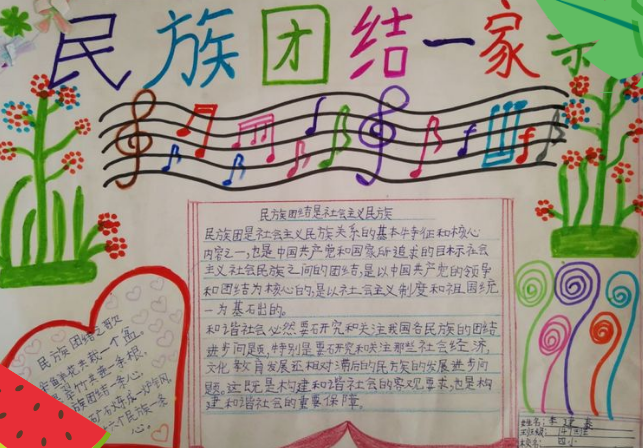 民族团结一家亲
民族团结是社会主义民族
民族团是社会主义民族关系的基本特征和核心
内容之一,也是中国共产党和国家所追求的目标示社会
主义社会民族之间的团结,是以中国共产党的领导
和团结为核心的,是以社会主义制度和祖国统
一为基石出的。
和谐社会必然要石研究和关注我国各民族的团结
进步问题,特别是要石研究和关注那些社会经济,
文化教育发展还相对滞后的民族的发展进步问
题,这既是构建和谐社会的客观要求,也是构
建和谐社会的重要保障。
民族团结之歌
花共栽一个盆
民族团结一条心
个民族一条
心。